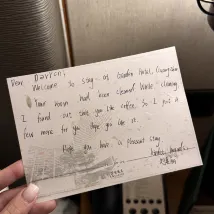 Dear Darren:
Welcome to stay at Garden Hotel, Guangzhou
Your room had been cleaned. While cleaning,
I found out that you like coffee. So I put a
few more for you. Hope you like it.
Hope you have a pleasant stay